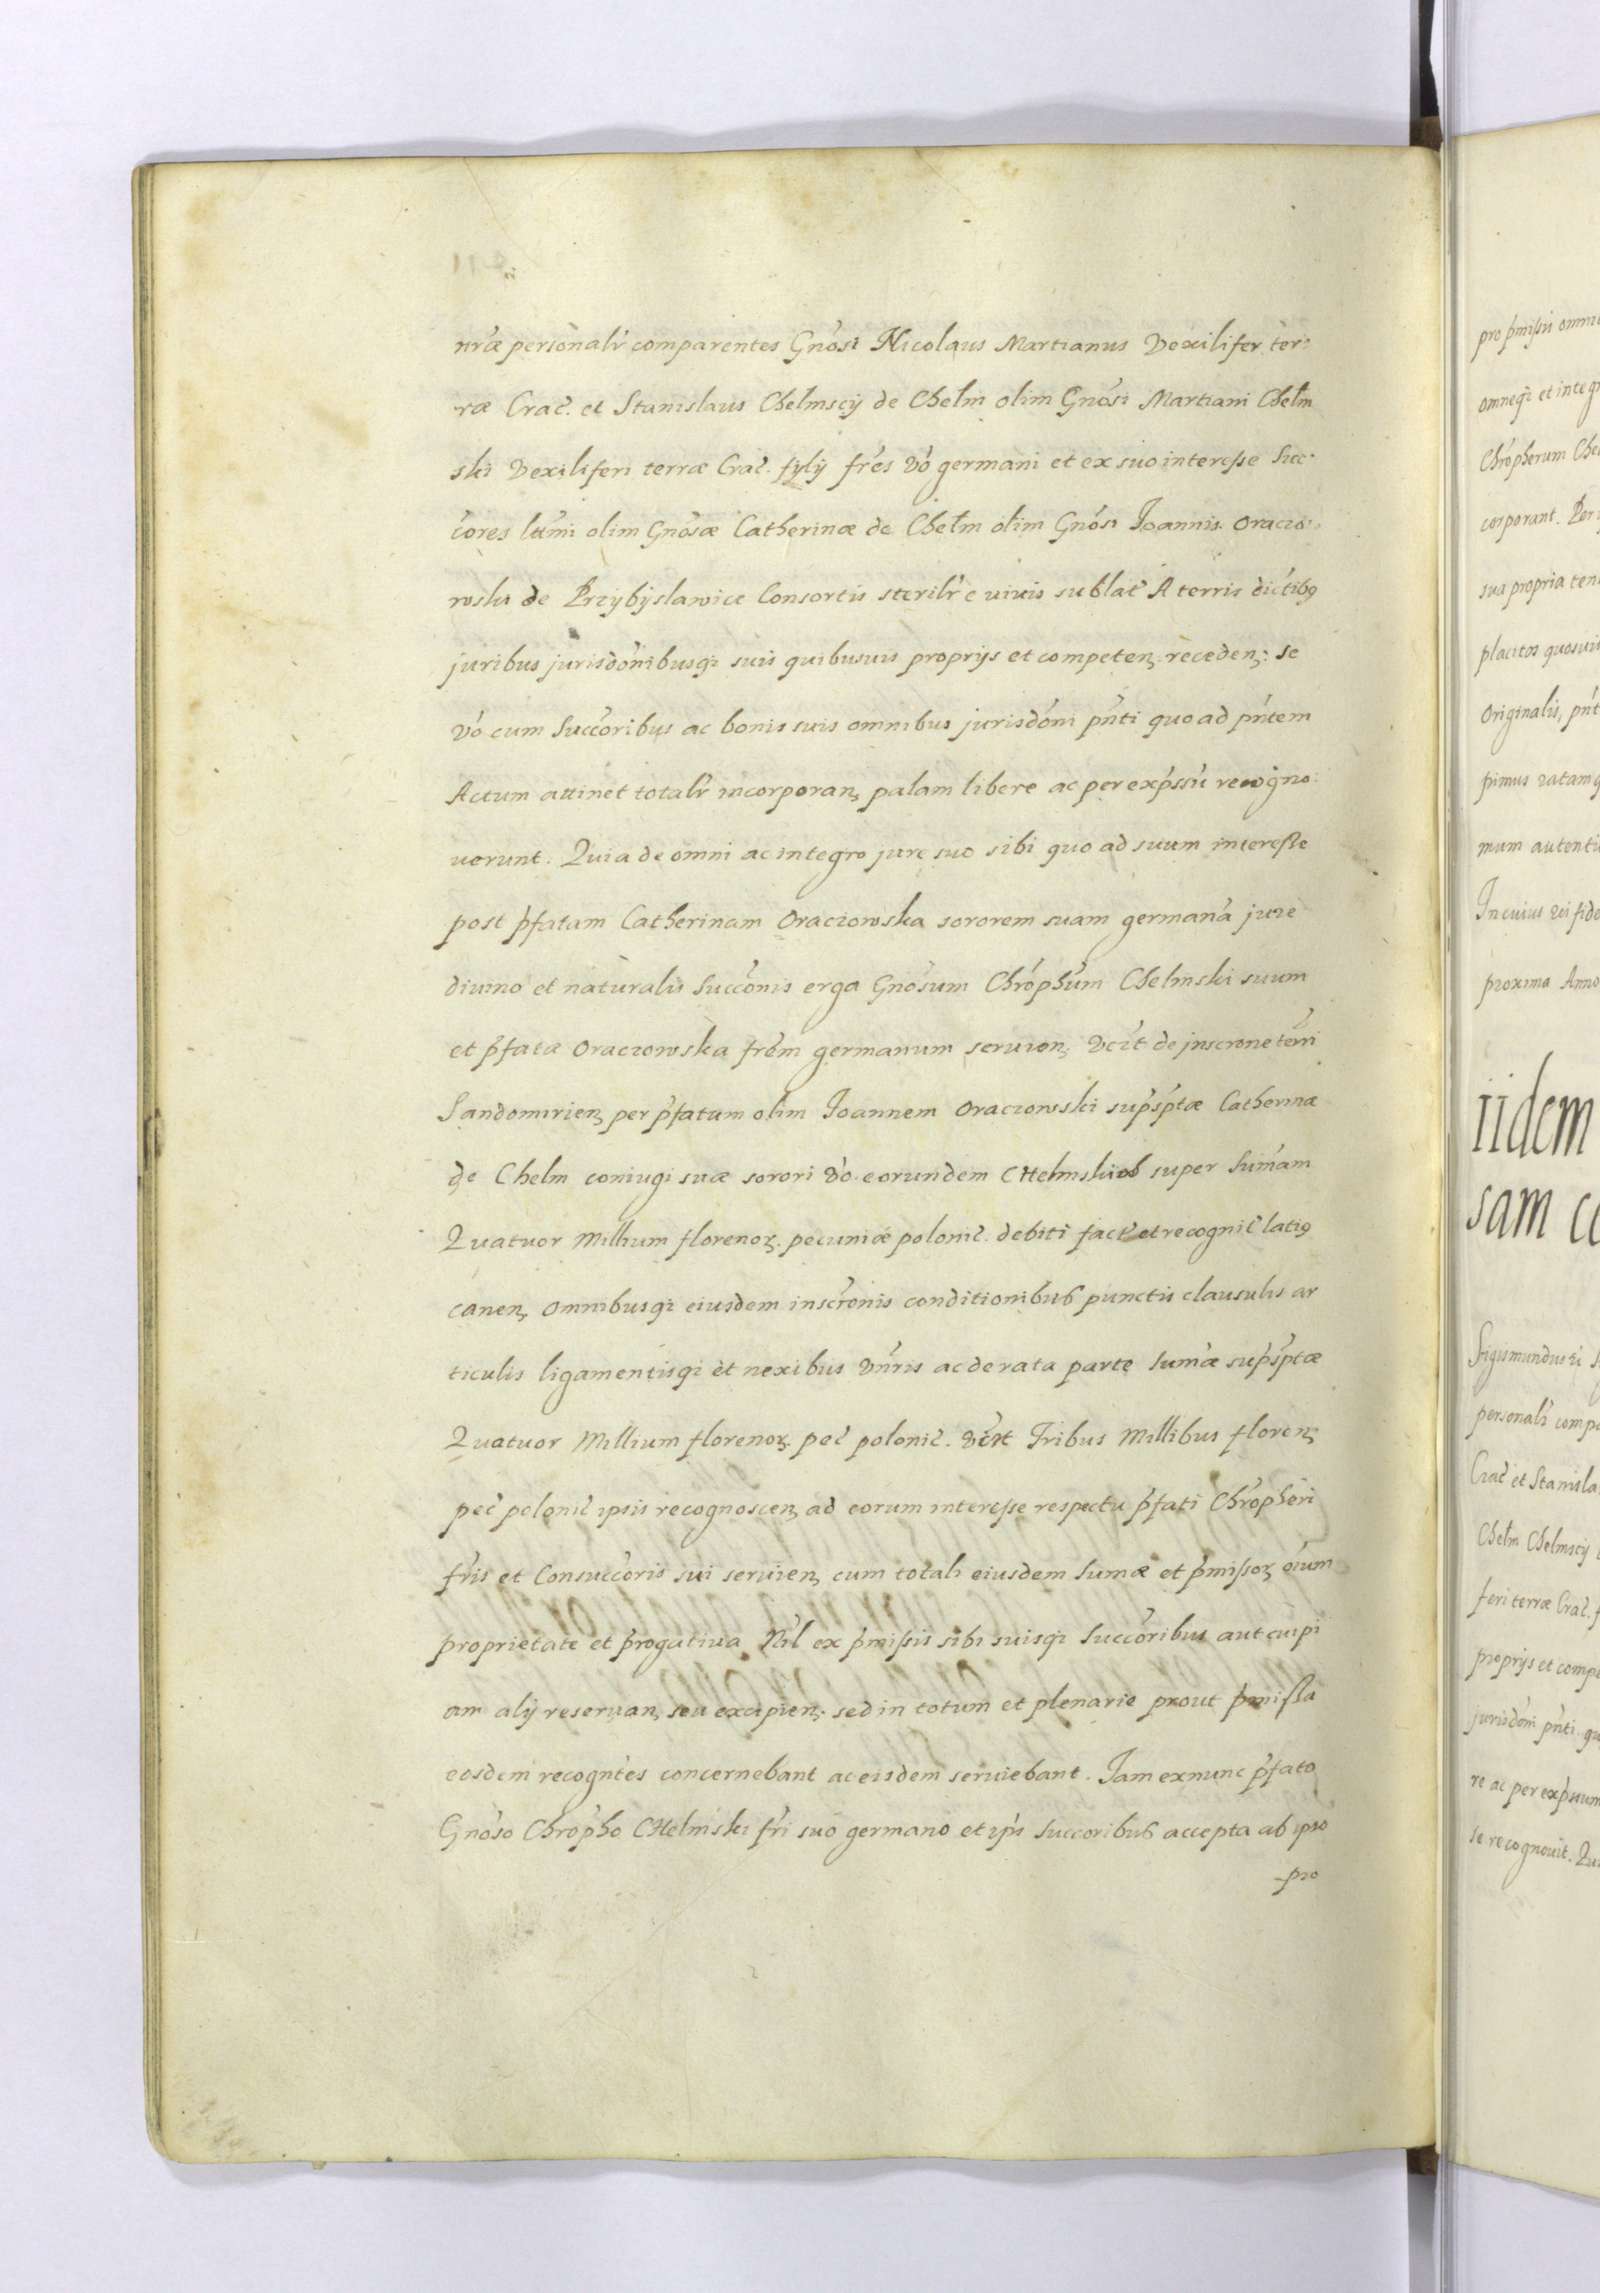 nr̃æ personalr̃ comparentes Gnõsi Nicolaus Martianus Vexilifer ter:
ræ Crac̃. et Stanislaus Chelmscÿ de Chełm olim Gnõsi Martiani Chełm
ski Vexiliferi terræ Crac̃. fylÿ fr̃es ṽo germani et ex suo interesse Suc:
c̃ores lt̃imi olim Gnõsæ Catherinæ de Chełm olim Gnõsi Joannis Oraczo:
wski de Przybÿslawice Consortis sterilr̃ e viuis sublat̃ A terris dic̃tibꝰ
juribus jurisdõnibusqꝫ suis quibusuis proprÿs et competenꝫ recedenꝫ: se
ṽo cum Succ̃oribus ac bonis suis omnibus jurisdõni pñti quo ad pñtem
Actum attinet totalr̃ incorporanꝫ palam libere ac per exp̃ssũ recogno:
uerunt. Quia de omni ac integro jure suo sibi quo ad suum interesse
post p̃fatam Catherinam Oraczowska sororem suam germanã jure
diuino et naturalis Succ̃onis erga Gnõsum Chr̃ophum Chelmski suum
et p̃fatæ Oraczowska fr̃em germanum seruien: Vc̃zt de jnscrõne ter̃ri
Sandomirienꝫ per p̃fatum olim Joannem Oraczowski sup̃sp̃tæ Catherinæ
de Chelm coniugi suæ sorori ṽo eorundem CHelmskich super Sum̃am
Quatuor Millium florenoꝝ. pecuniæ polonic̃. debiti fact̃ et recognit̃ latiꝰ
canenꝫ Omnibusqꝫ eiusdem inscr̃onis conditionibus punctis clausulis ar
ticulis ligamentisqꝫ et nexibus vñris ac de rata parte Sum̃æ sup̃sp̃tæ
Quatuor Millium florenoꝝ. pec̃ polonic̃. vc̃zt Tribus Millibus florenꝫ
pec̃ polonic̃ ipsis recognoscenꝫ ad eorum interesse respectu p̃fati Chr̃opheri
fr̃is et Consucc̃oris sui seruienꝫ cum totali eiusdem Sum̃æ et p̃missoꝝ oĩum
proprietate et p̃rogatiua Nil̃ ex p̃missis sibi suisqꝫ Succ̃oribus aut cuipi
am alÿ reseruanꝫ seu excipienꝫ. sed in totum et plenarie prout p̃missa
eosdem recogntẽs concernebant ac eisdem seruiebant. Jam exnunc p̃fato
Gnõso Chr̃opho CHelmski fr̃i suo germano et ip̃i Succoribus accepta ab ipso
pro
pro p̃missis
omneqꝫ et
Chr̃opherum
corporant.
sua propria
placitos quosuis
Originalis,
pimus ratam
mum
In cuius rei
proxima Anno
iidem
sam
Sigismundus
personalr̃
Crac̃ et
Chełm Chelmscÿ
feri terræ Crac̃.
proprÿs et
jurisdõni pñti
re ac per
se recognouit.